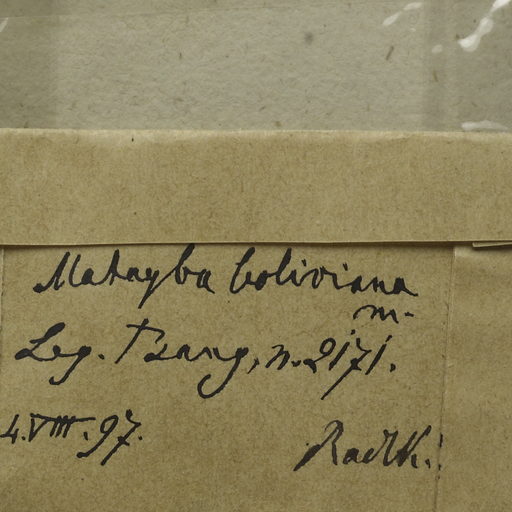 Matayba boliviana
m.
Leg. Tsang, n. 2171.
4.VIII.97.
Radlk.